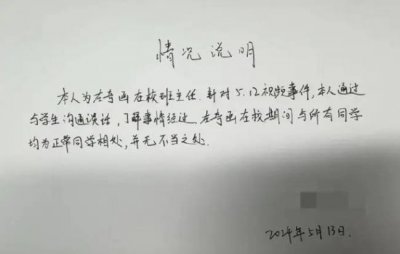 情况说明
本人为左奇函在校班主任.针对5.12视频事件,本人通过
与学生沟通谈话,了解事情经过.左奇函在校期间与所有同学
均为正常同学相处,并无不当之处.
2024年5月13日.